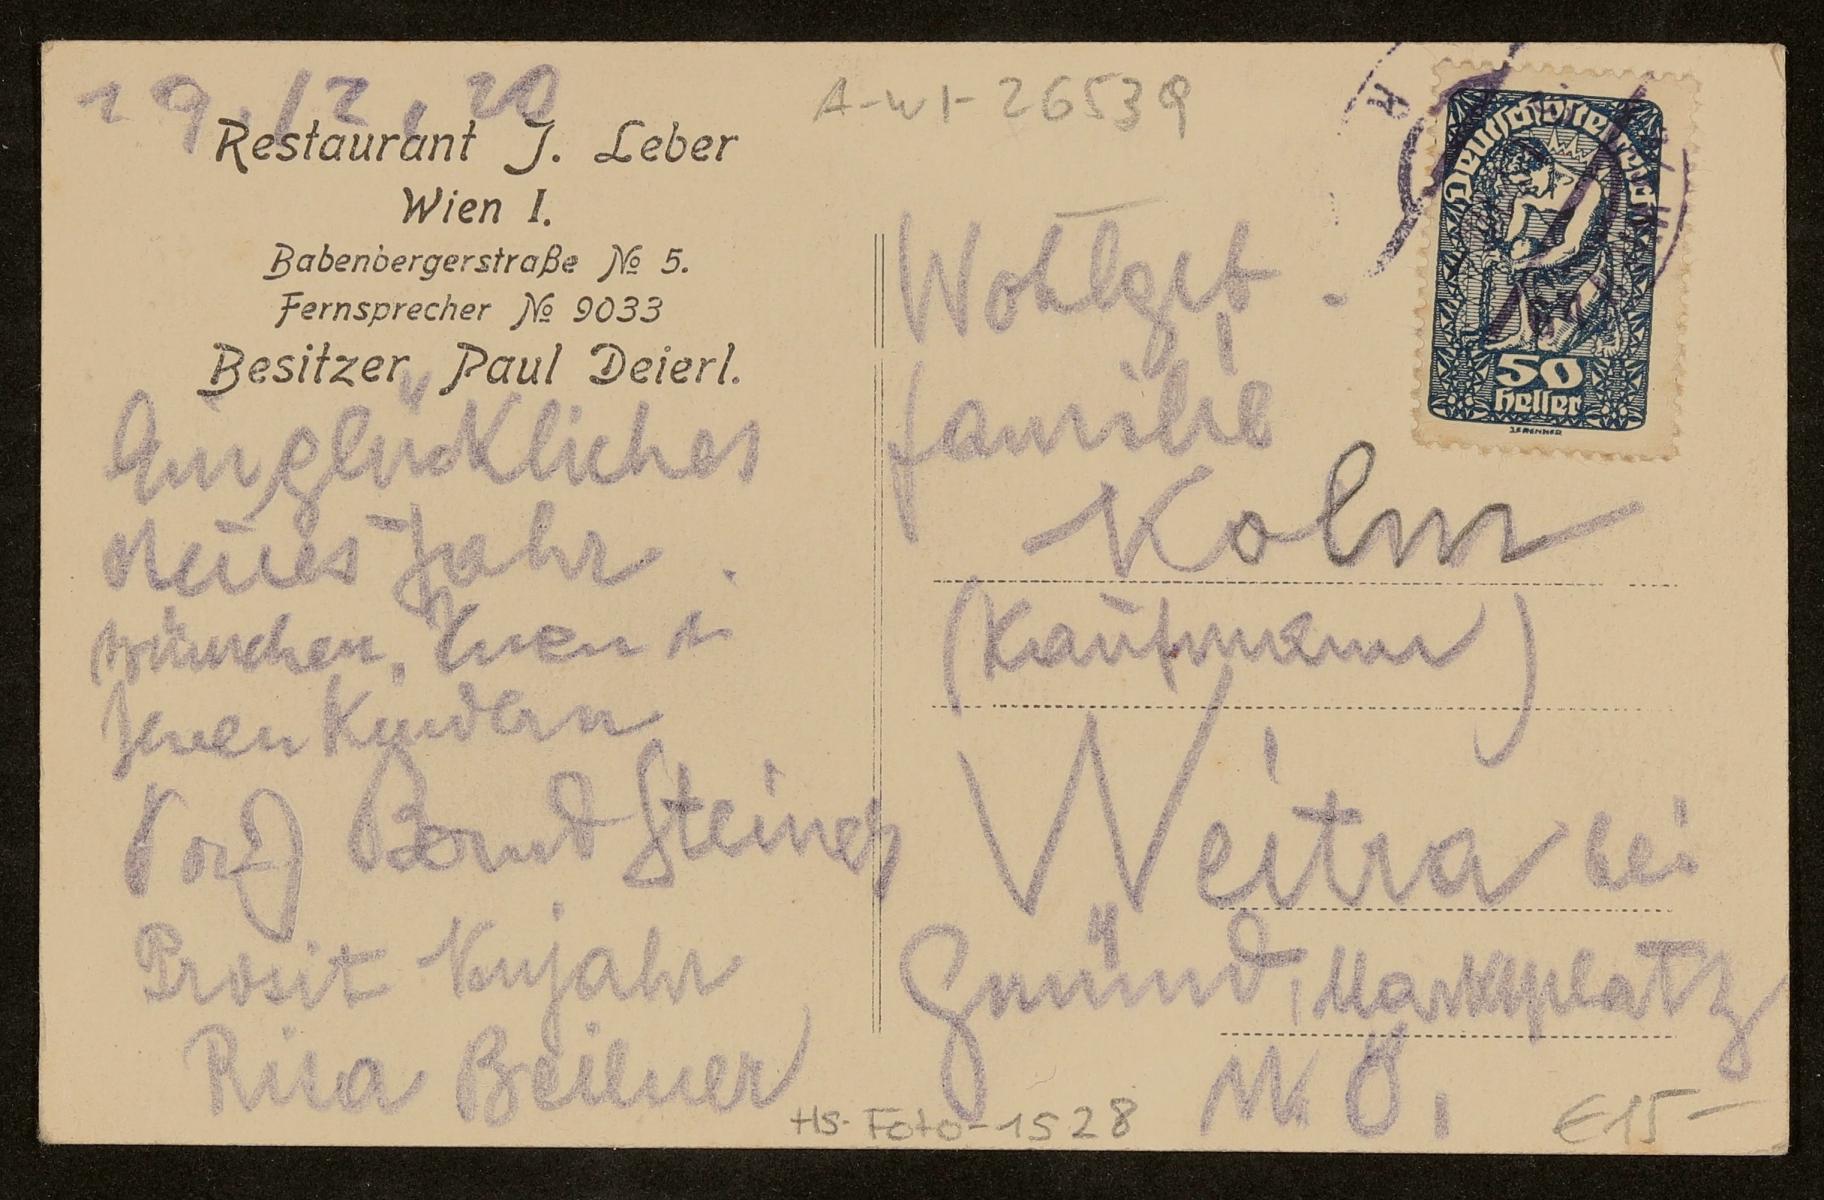 29. 12. 20
Restaurant J. Leber
Wien I.
Babenbergerstraße № 5.
Fernsprecher № 9033
Besitzer Paul Deierl.
Ein glückliches
neues Jahr
wünschen, Ihnen u
Ihren Kindern
Steiner
Prosit Neujahr
A-WI-26539
Wohlgeb.
Familie
Kolm
(Kaufmann)
Weitra bei
Gmünd, Marktplatz
N. Ö.
Deutschösterreich
50
Heller
HS-Foto-1528
€15-